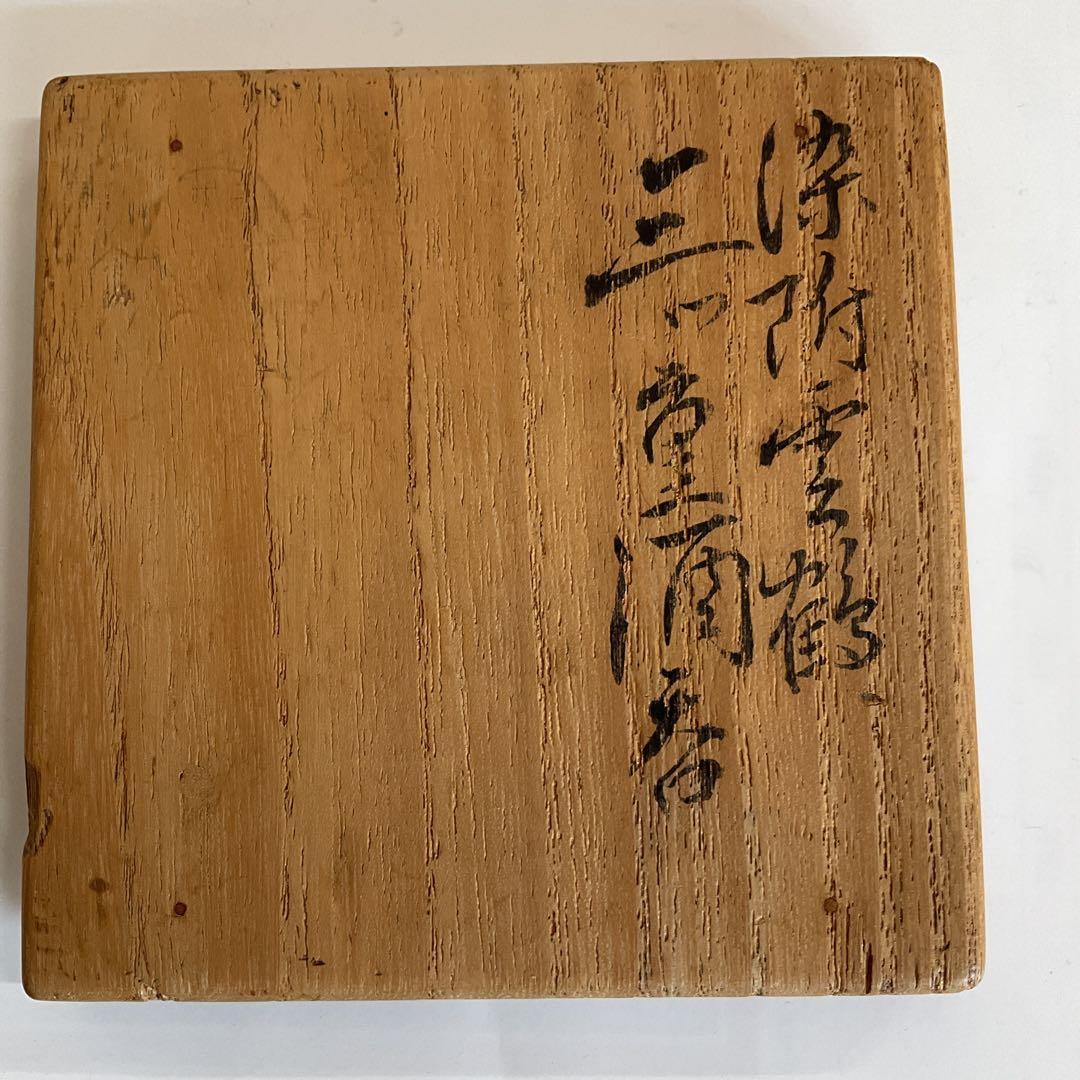 染附雲鶴
三ツ重酒呑